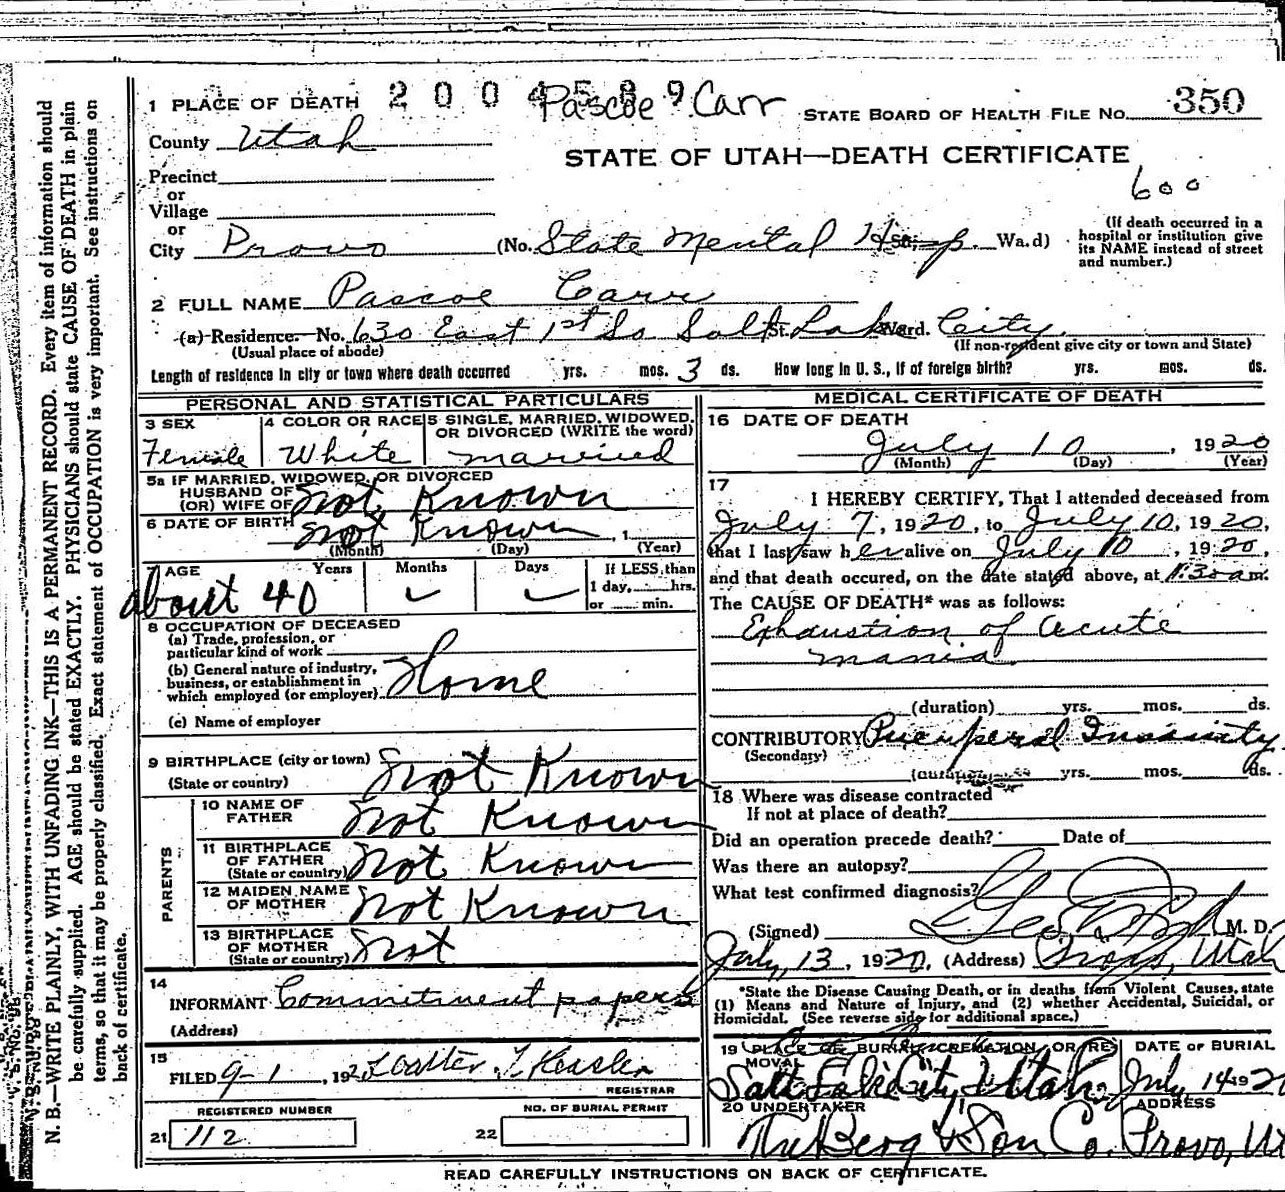 2004589 Pascoe Carr
1 PLACE OF DEATH
STATE BOARD OF HEALTH FILE NO. 350
County Utah
STATE OF UTAH—DEATH CERTIFICATE
600
Precinct
or
Village
or
City Provo (No. State Mental Hosp. St.; Wa.d)
(If death occurred in a hospital or institution give its NAME instead of street and number.)
2 FULL NAME Pascoe Carr
(a) Residence. No. 630 East 1st So Salt Lake St. Ward. City
(Usual place of abode) (If non-resident give city or town and State)
Length of residence in city or town where death occurred yrs. mos. 3 ds. How long in U. S., if of foreign birth? yrs. mos. ds.
PERSONAL AND STATISTICAL PARTICULARS
3 SEX
Female
4 COLOR OR RACE
White
5 SINGLE, MARRIED, WIDOWED, OR DIVORCED (WRITE the word)
married
5a IF MARRIED, WIDOWED, OR DIVORCED
HUSBAND OF
(OR) WIFE OF Not Known
6 DATE OF BIRTH Not Known, 1
(Month) (Day) (Year)
AGE Years Months Days If LESS than
1 day, hrs.
or min.
about 40
8 OCCUPATION OF DECEASED
(a) Trade, profession, or
particular kind of work
(b) General nature of industry,
business, or establishment in
which employed (or employer) Home
(c) Name of employer
9 BIRTHPLACE (city or town)
(State or country) Not Known
PARENTS
10 NAME OF
FATHER Not Known
11 BIRTHPLACE
OF FATHER
(State or country) Not Known
12 MAIDEN NAME
OF MOTHER Not Known
13 BIRTHPLACE
OF MOTHER
(State or country) Not
14
INFORMANT Commitment papers
(Address)
15
FILED 9-1, 192 Walter T Hessler
REGISTRAR
REGISTERED NUMBER
21 112
NO. OF BURIAL PERMIT
22
MEDICAL CERTIFICATE OF DEATH
16 DATE OF DEATH
July 10, 1920
(Month) (Day) (Year)
17
I HEREBY CERTIFY, That I attended deceased from
July 7, 1920, to July 10, 1920,
that I last saw her alive on July 10, 1920,
and that death occured, on the date stated above, at 1:30 am.
The CAUSE OF DEATH* was as follows:
Exhaustion of acute
mania
(duration) yrs. mos. ds.
CONTRIBUTORY Puerperal Insanity
(Secondary)
(duration) yrs. mos. ds.
18 Where was disease contracted
If not at place of death?
Did an operation precede death? Date of
Was there an autopsy?
What test confirmed diagnosis?
(Signed) Geo M. D.
July 13, 1920, (Address) Provo, Utah
*State the Disease Causing Death, or in deaths from Violent Causes, state
(1) Means and Nature of Injury, and (2) whether Accidental, Suicidal, or
Homicidal. (See reverse side for additional space.)
19 PLACE OF BURIAL, CREMATION, OR RE-
MOVAL
Salt Lake City Utah
DATE OF BURIAL
July 14 192
20 UNDERTAKER
The Berg & Son Co.
ADDRESS
Provo, Ut
READ CAREFULLY INSTRUCTIONS ON BACK OF CERTIFICATE.
N. B.—WRITE PLAINLY, WITH UNFADING INK—THIS IS A PERMANENT RECORD. Every item of information should
be carefully supplied. AGE should be stated EXACTLY. PHYSICIANS should state CAUSE OF DEATH in plain
terms, so that it may be properly classified. Exact statement of OCCUPATION is very important. See instructions on
back of certificate.